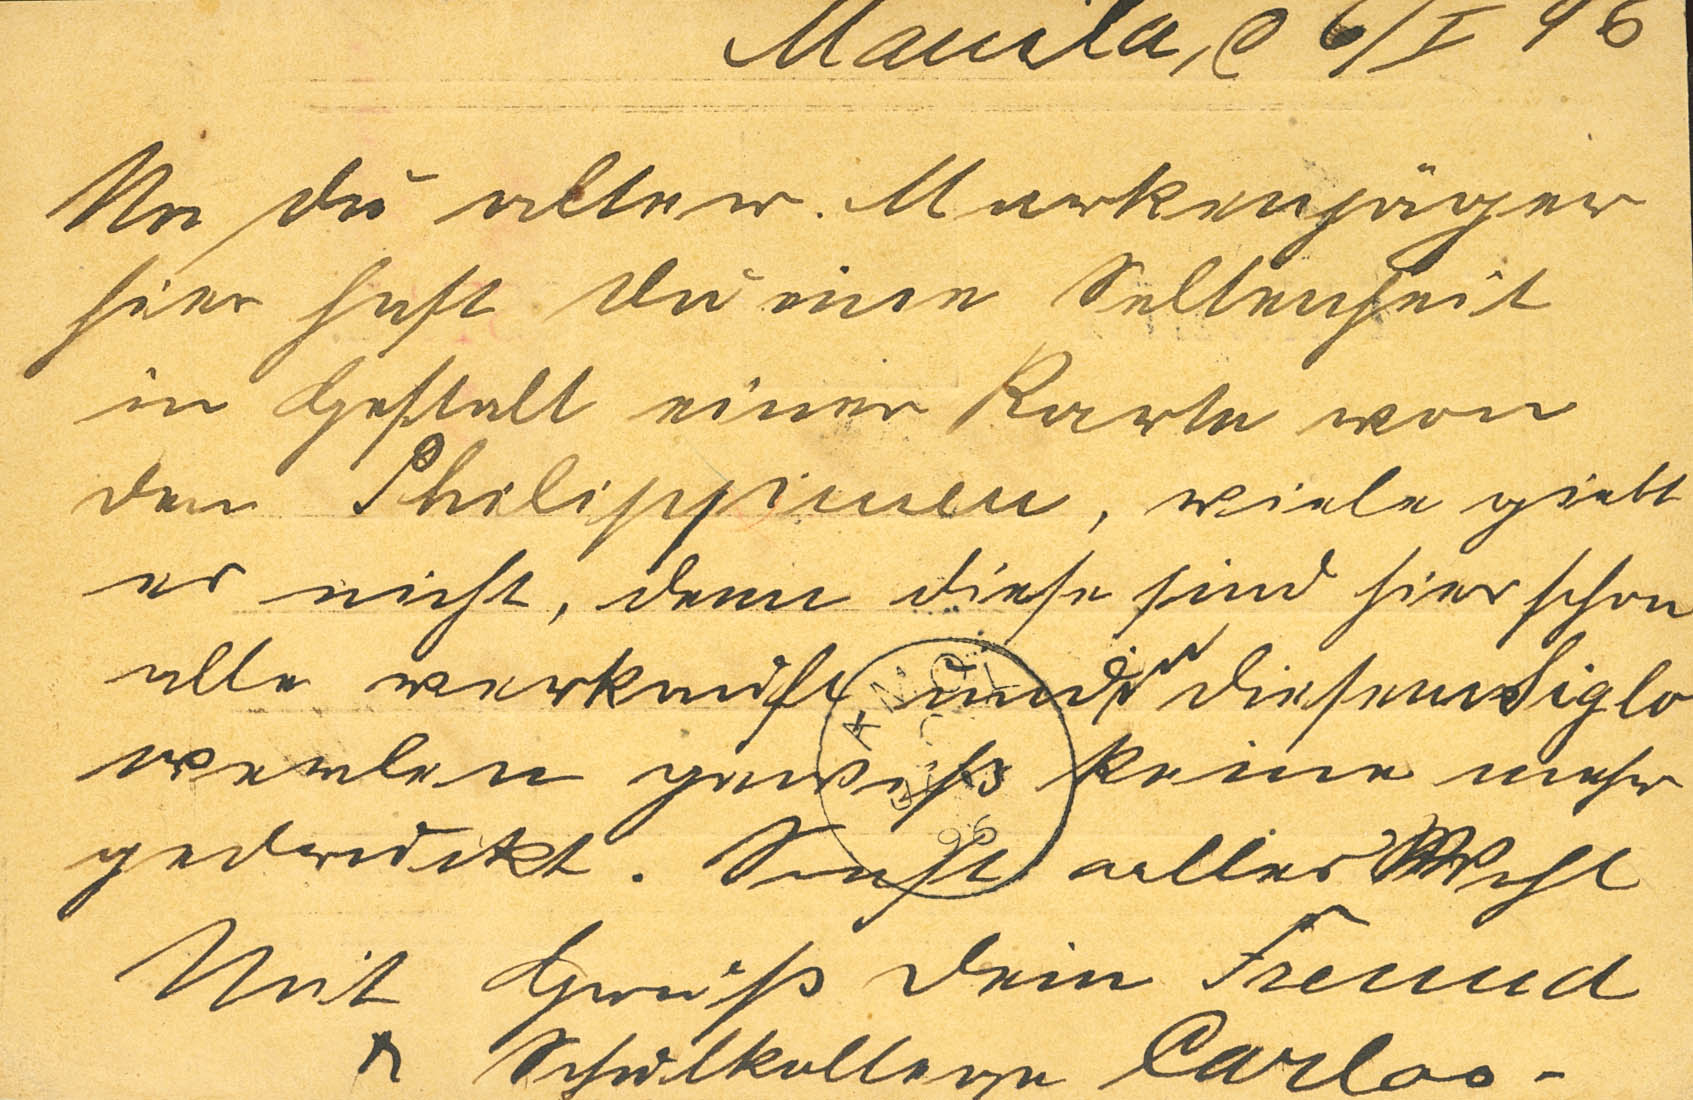 Manila, 6/I 96
Na du alter Markenjäger
hier hast du eine Seltenheit
in Gestalt einer Karte von
den Philippinen, viele giebt
es nicht, denn diese sind hier schon
alle verkauft und in diesem Siglo
werden gewiss keine mehr
gedruckt. Sonst alles Wohl
Mit Gruß dein Freund
& Schulkollege Carlos -